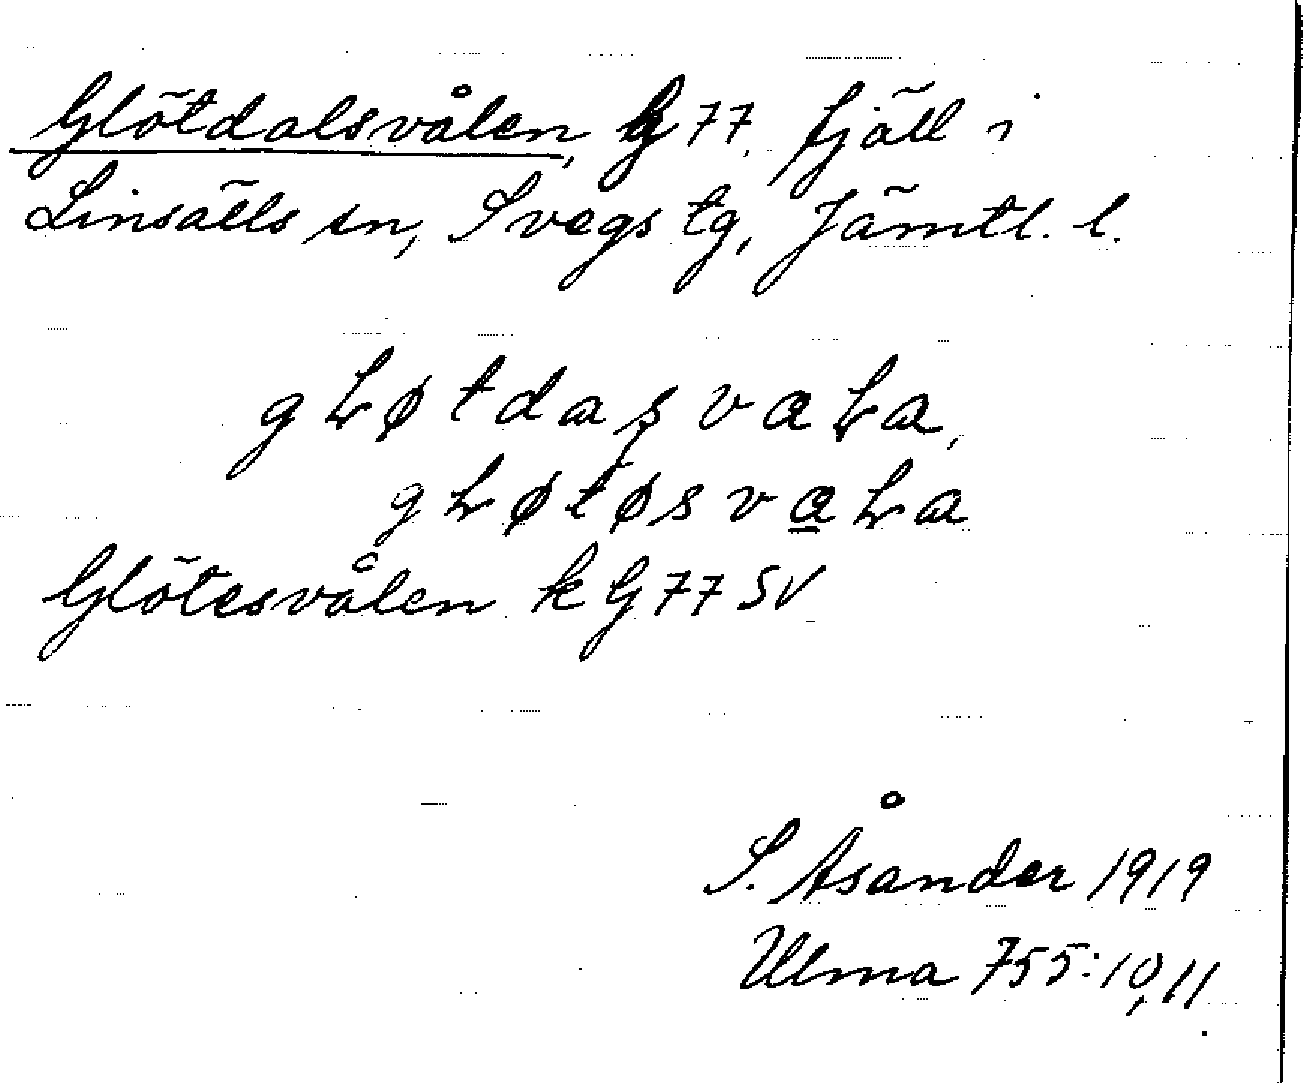 Glötdalsvålen, G 77, fjäll i
Linsälls sn, Svegs tg, Jämtl. l.
gLøtdaʂvaLa,
gLøtøsvaLa
Glötesvålen k G 77 SV
S. Åsander 1919
Ulma 755:10,11